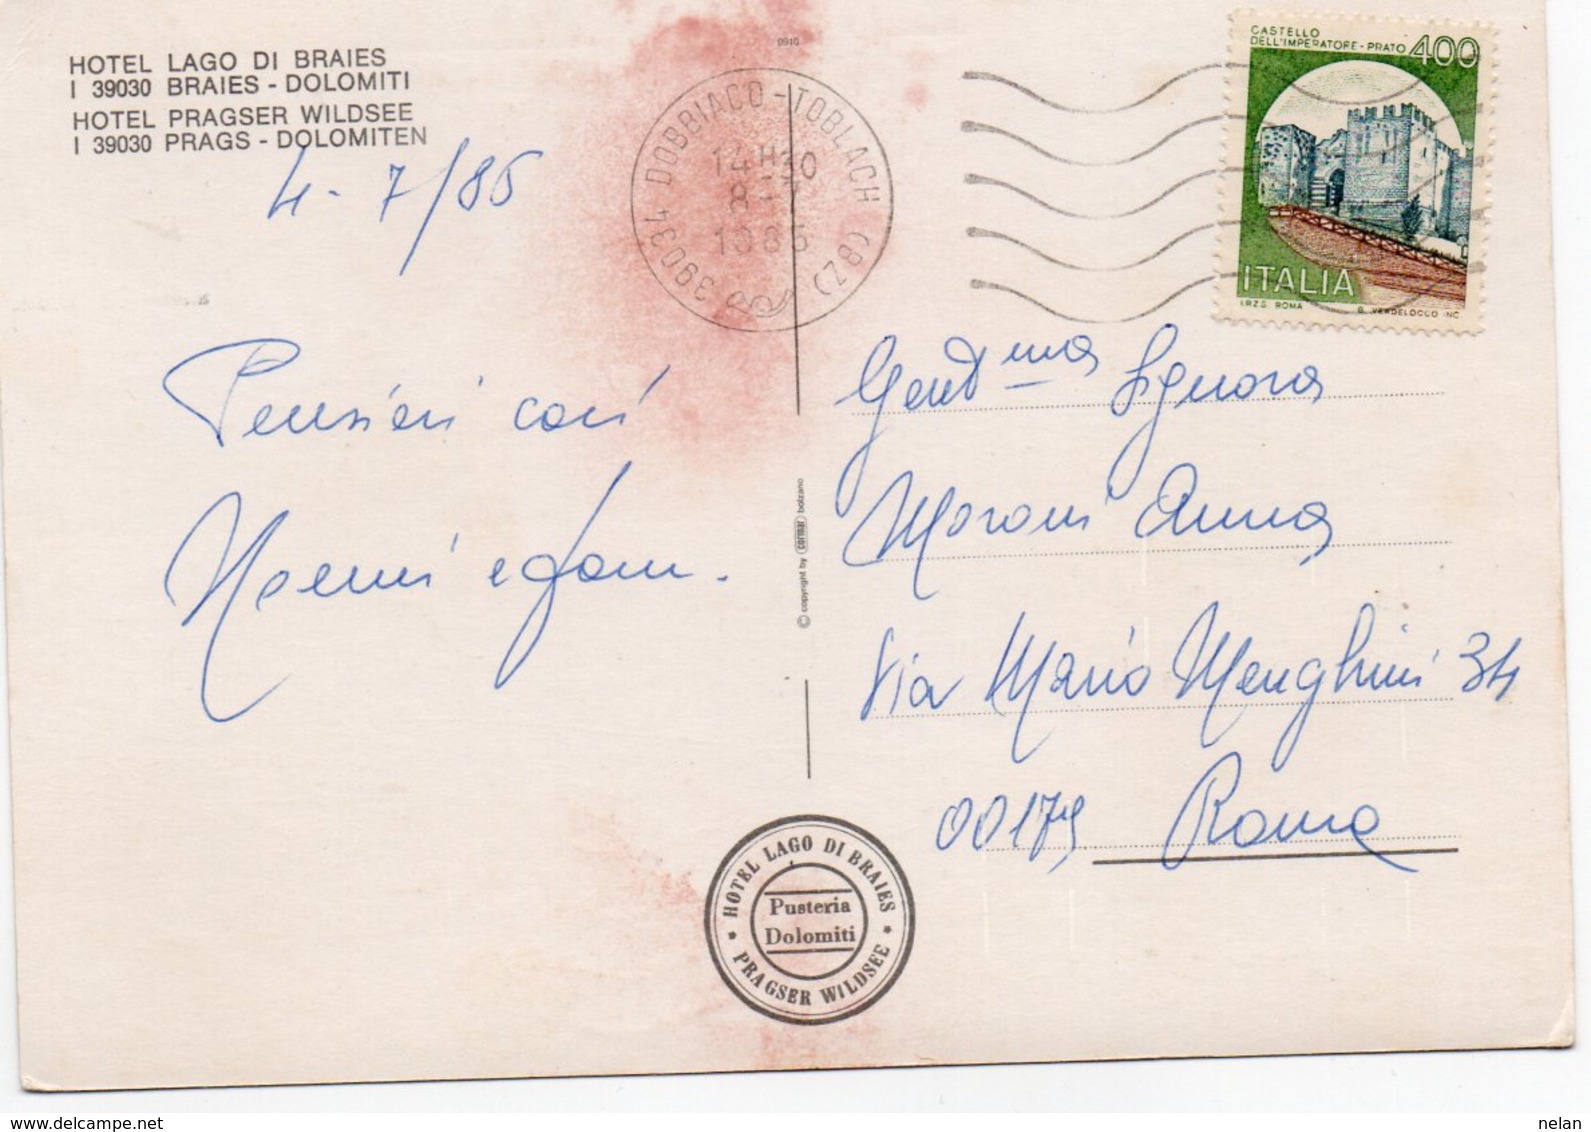 HOTEL LAGO DI BRAIES
I 39030 BRAIES - DOLOMITI
HOTEL PRAGSER WILDSEE
I 39030 PRAGS - DOLOMITEN
4-7/86
0910
39034 DOBBIACO - TOBLACH (BZ)
14 H30
8-7
1986
CASTELLO
DELL'IMPERATORE - PRATO 400
ITALIA
I.P.Z.S. ROMA G. VERDELOCCO INC.
Pensieri cari
Noemi e fam.
© copyright by cormar bolzano
Gent.ma Signora
Moroni Anna
Via Mario Menghini 34
00179 Roma
* HOTEL LAGO DI BRAIES *
Pusteria
Dolomiti
PRAGSER WILDSEE
www.delcampe.net
nelan